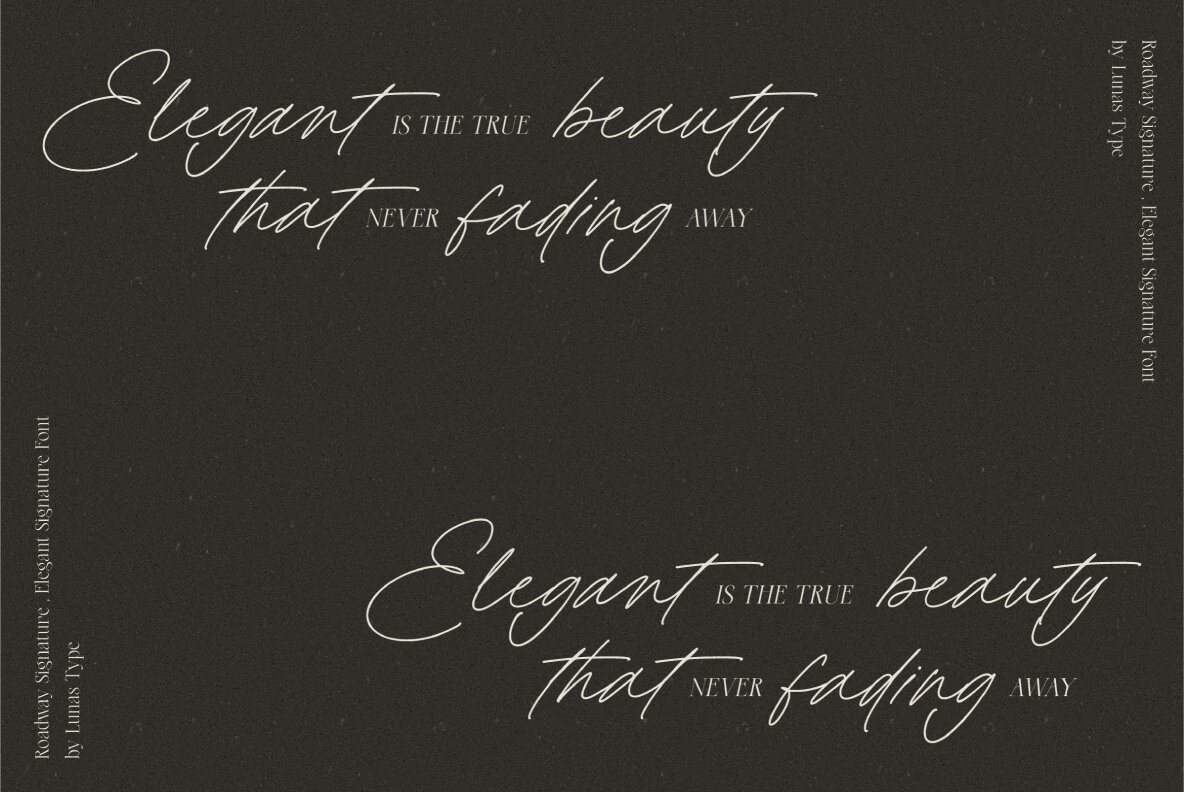 Elegant IS THE TRUE beauty
that NEVER fading AWAY
Roadway Signature . Elegant Signature Font
by Lunas Type
Roadway Signature . Elegant Signature Font
by Lunas Type
Elegant IS THE TRUE beauty
that NEVER fading AWAY